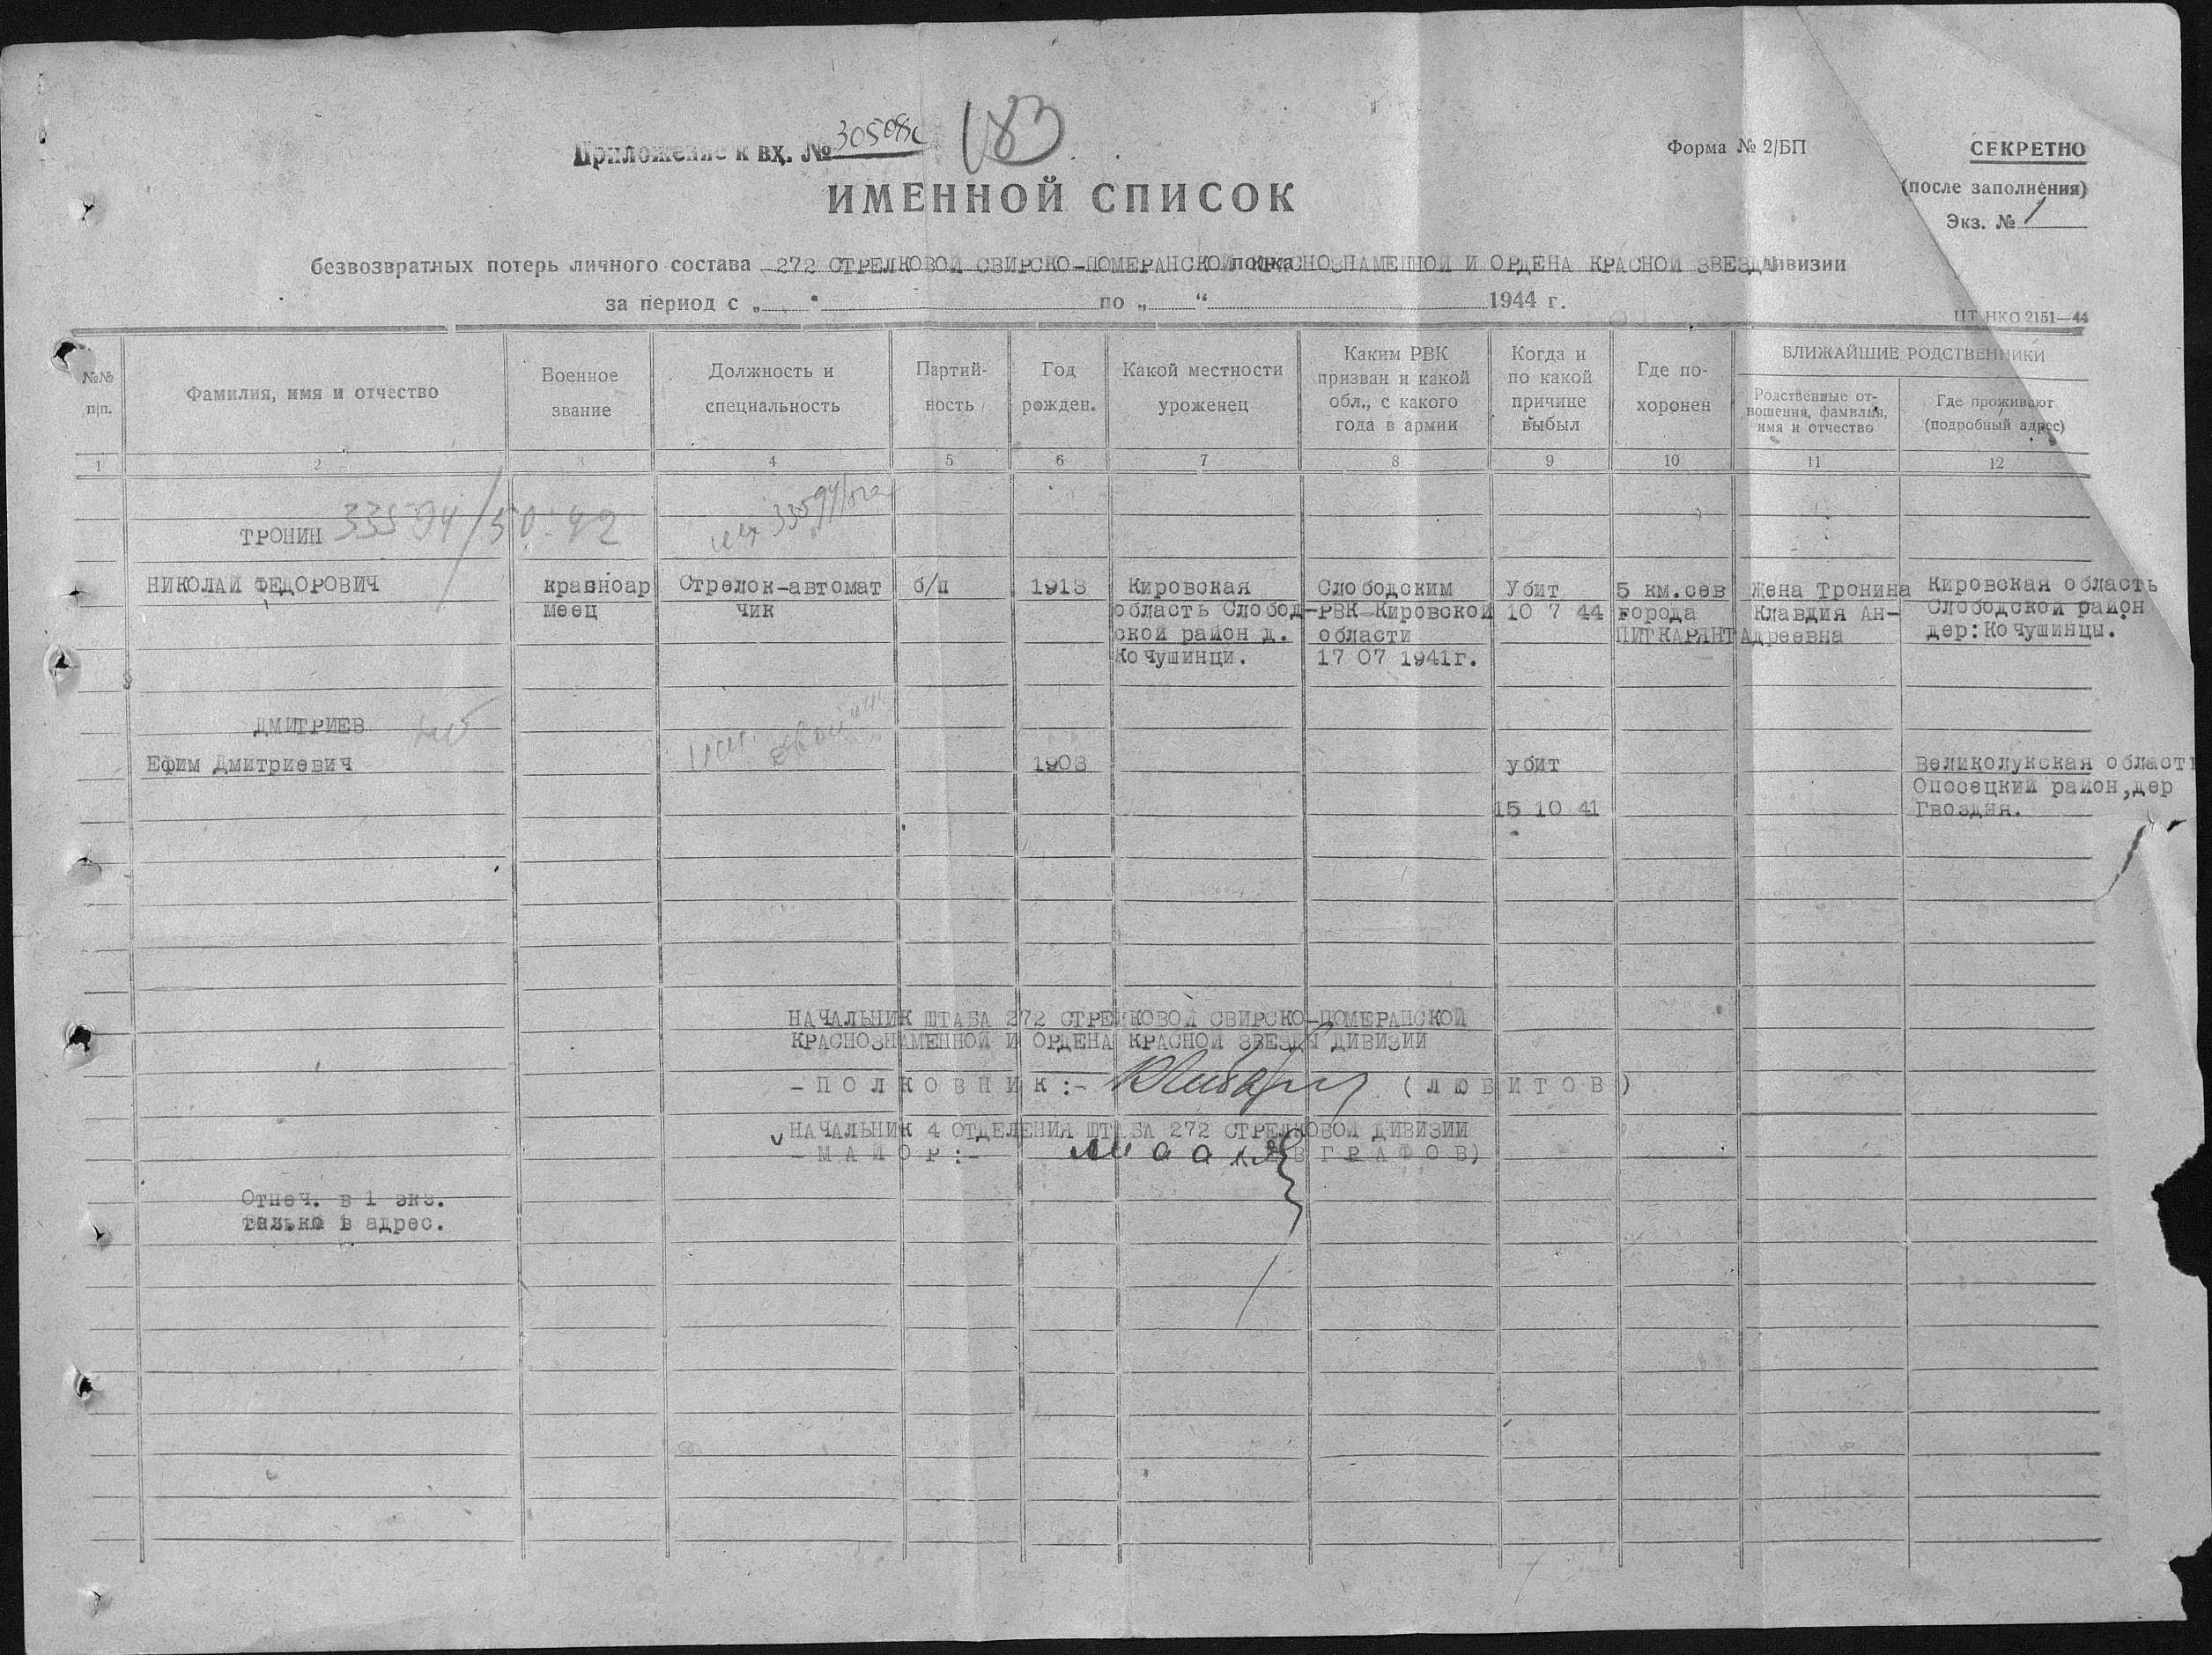 Приложение к вх. № 30508с
183
Форма № 2/БП
СЕКРЕТНО
(после заполнения)
Экз. № 1
ИМЕННОЙ СПИСОК
безвозвратных потерь личного состава 272 СТРЕЛКОВОЙ СВИРСКО-ПОМЕРАНСКОЙ КРАСНОЗНАМЕННОЙ И ОРДЕНА КРАСНОЙ ЗВЕЗДЫ дивизии
за период с „ “ по „ “ 1944 г.
ЦТ НКО 2151—44
№№ п|п.
Фамилия, имя и отчество
Военное звание
Должность и специальность
Партий-
ность
Год рожден.
Какой местности уроженец
Каким РВК
призван и какой
обл., с какого
года в армии
Когда и
по какой
причине
выбыл
Где по-
хоронен
БЛИЖАЙШИЕ РОДСТВЕННИКИ
Родственные от-
ношения, фамилия,
имя и отчество
Где проживают
(подробный адрес)
1 2 3 4 5 6 7 8 9 10 11 12
ТРОНИН 33594/50.42
НИКОЛАЙ ФЕДОРОВИЧ
красноар
меец
Стрелок-автомат
чик
б/п
1913
Кировская
область Слобод-
ской район д.
Кочушинци.
Слободским
РВК Кировской
области
17 07 1941г.
Убит
10 7 44
5 км.сев
города
ПИТКАРЯНТ
Жена Тронина
Клавдия Ан-
дреевна
Кировская область
Слободской район
дер:Кочушинцы.
ДМИТРИЕВ
Ефим Дмитриевич
1903
убит
15 10 41
Великолукская область
Опосецкий район,дер
Гвоздня.
НАЧАЛЬНИК ШТАБА 272 СТРЕЛКОВОЙ СВИРСКО-ПОМЕРАНСКОЙ
КРАСНОЗНАМЕННОЙ И ОРДЕНА КРАСНОЙ ЗВЕЗДЫ ДИВИЗИИ
- П О Л К О В Н И К :- ( Л Ю Б И Т О В )
НАЧАЛЬНИК 4 ОТДЕЛЕНИЯ ШТАБА 272 СТРЕЛКОВОЙ ДИВИЗИИ
- М А Й О Р :- В Г Р А Ф О В )
Отпеч. в 1 экз.
только в адрес.